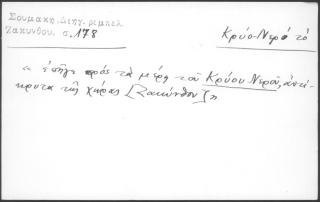 Σουμάκη, Διήγ. ρεμπελ.
Ζακύνθου. σ. 178
Κρύο-Νερό τό
« ἐπῆγε πρός τά μέρη τοῦ Κρύου Νεροῦ, ἀντί-
κρυτα τῆς χώρας [Ζακύνθου] »